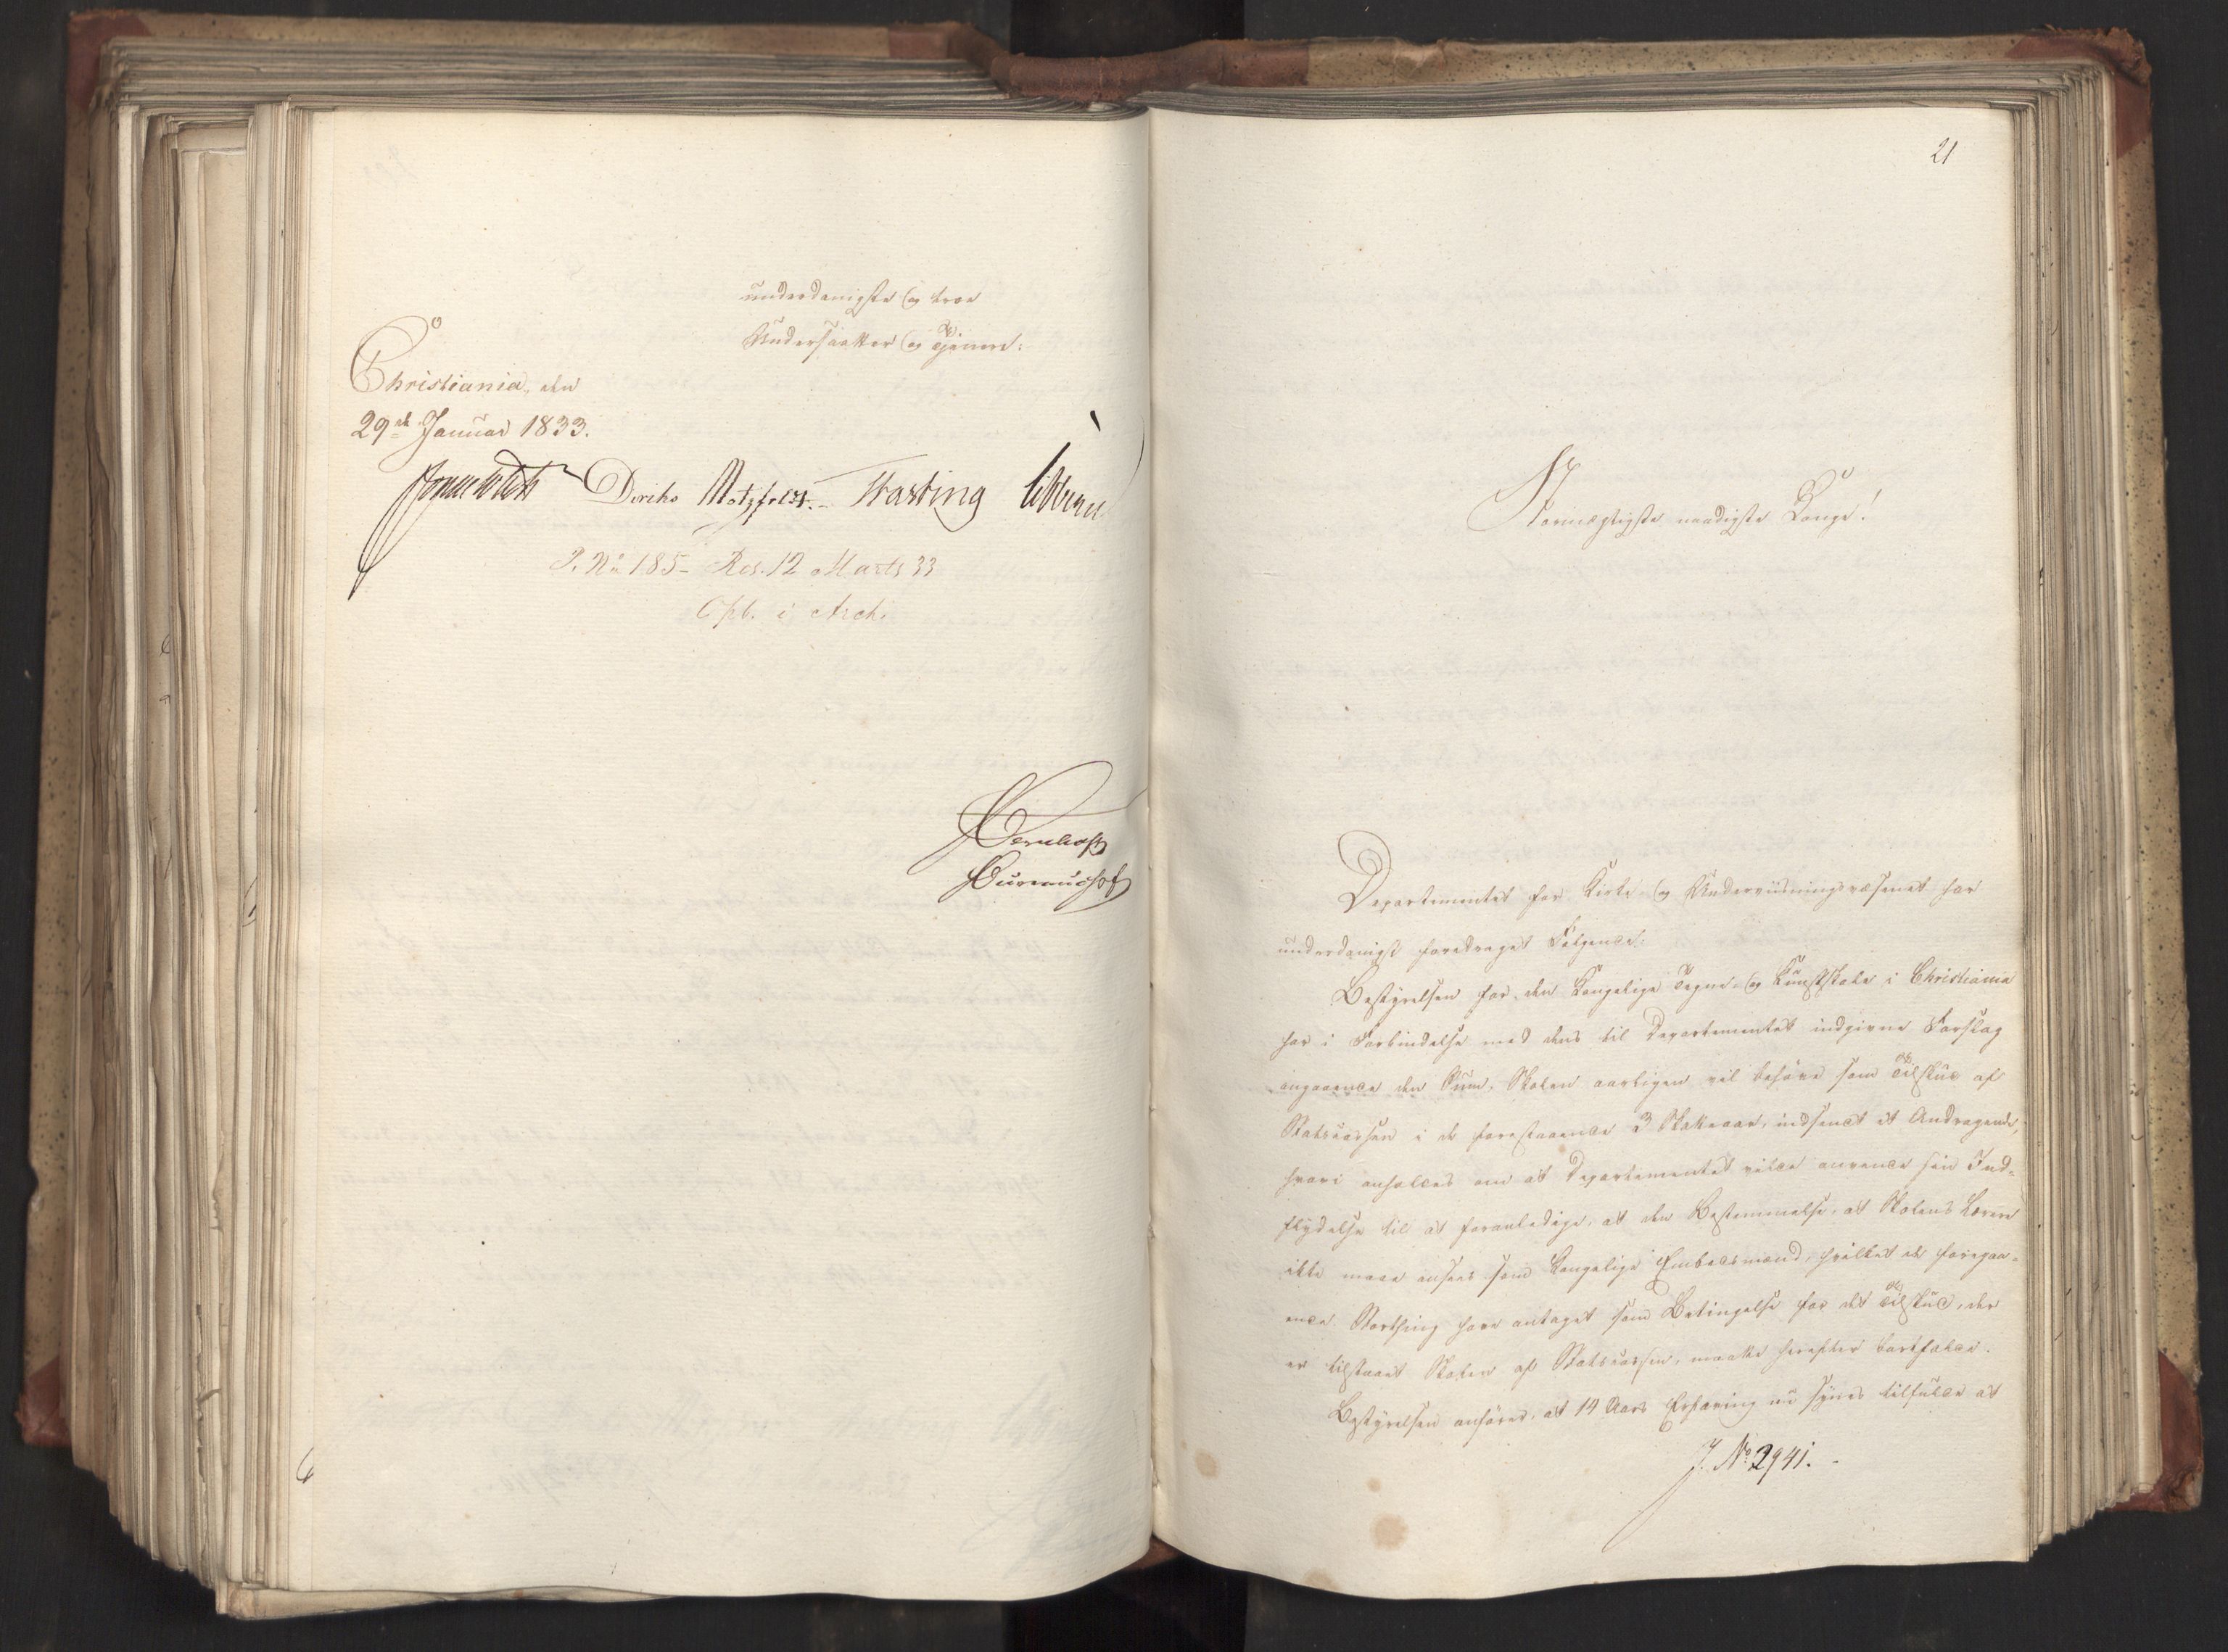 underdanigste og troe
Undersaatter og Tjenere.
Christiania, den
29de Januar 1833.
Diriks Motzfeldt. Fasting
P. No 185 - Res. 12 Marts 33
Opb. i Arch.
21
Stormægtigste naadigste Konge!
Departementet for Kirke- og Underviisningsvæsenet har
underdanigst foredraget Følgende:
Bestyrelsen for den Kongelige Tegne- og Kunstskole i Christiania
har i Forbindelse med dens til Departementet indgivne Forslag
angaaende den Sum, Skolen aarligen vil behøve som Tilskud af
Statscassen i de forestaaende 3 Skatteaar, indsendt et Andragende,
hvori anholdes om at Departementet vilde anvende sin Ind-
flydelse til at foranledige, at den Bestemmelse, at Skolens Lærere
ikke maae ansees som Kongelige Embedsmænd, hvilket de foregaa-
ende Storthing have antaget som Betingelse for det Tilskud, der
er tilstaaet Skolen af Statscassen, maatte herefter bortfalde.
Bestyrelsen anfører, at 14 Aars Erfaring nu synes tilfulde at
J. No 2941.